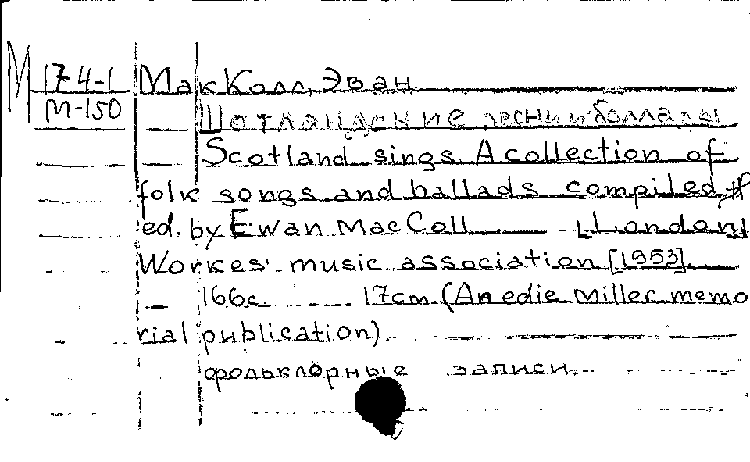 М 17 4-1 МакКолл, Эван
М-150 Шотландские песни и баллады
Scotland sings. A collection of
folk songs and ballads compiled &
ed. by Ewan MacColl London,
Workes' music association [1953].
166с. 17cm (An edie Miller memo
rial publication)
фольклорные записи.